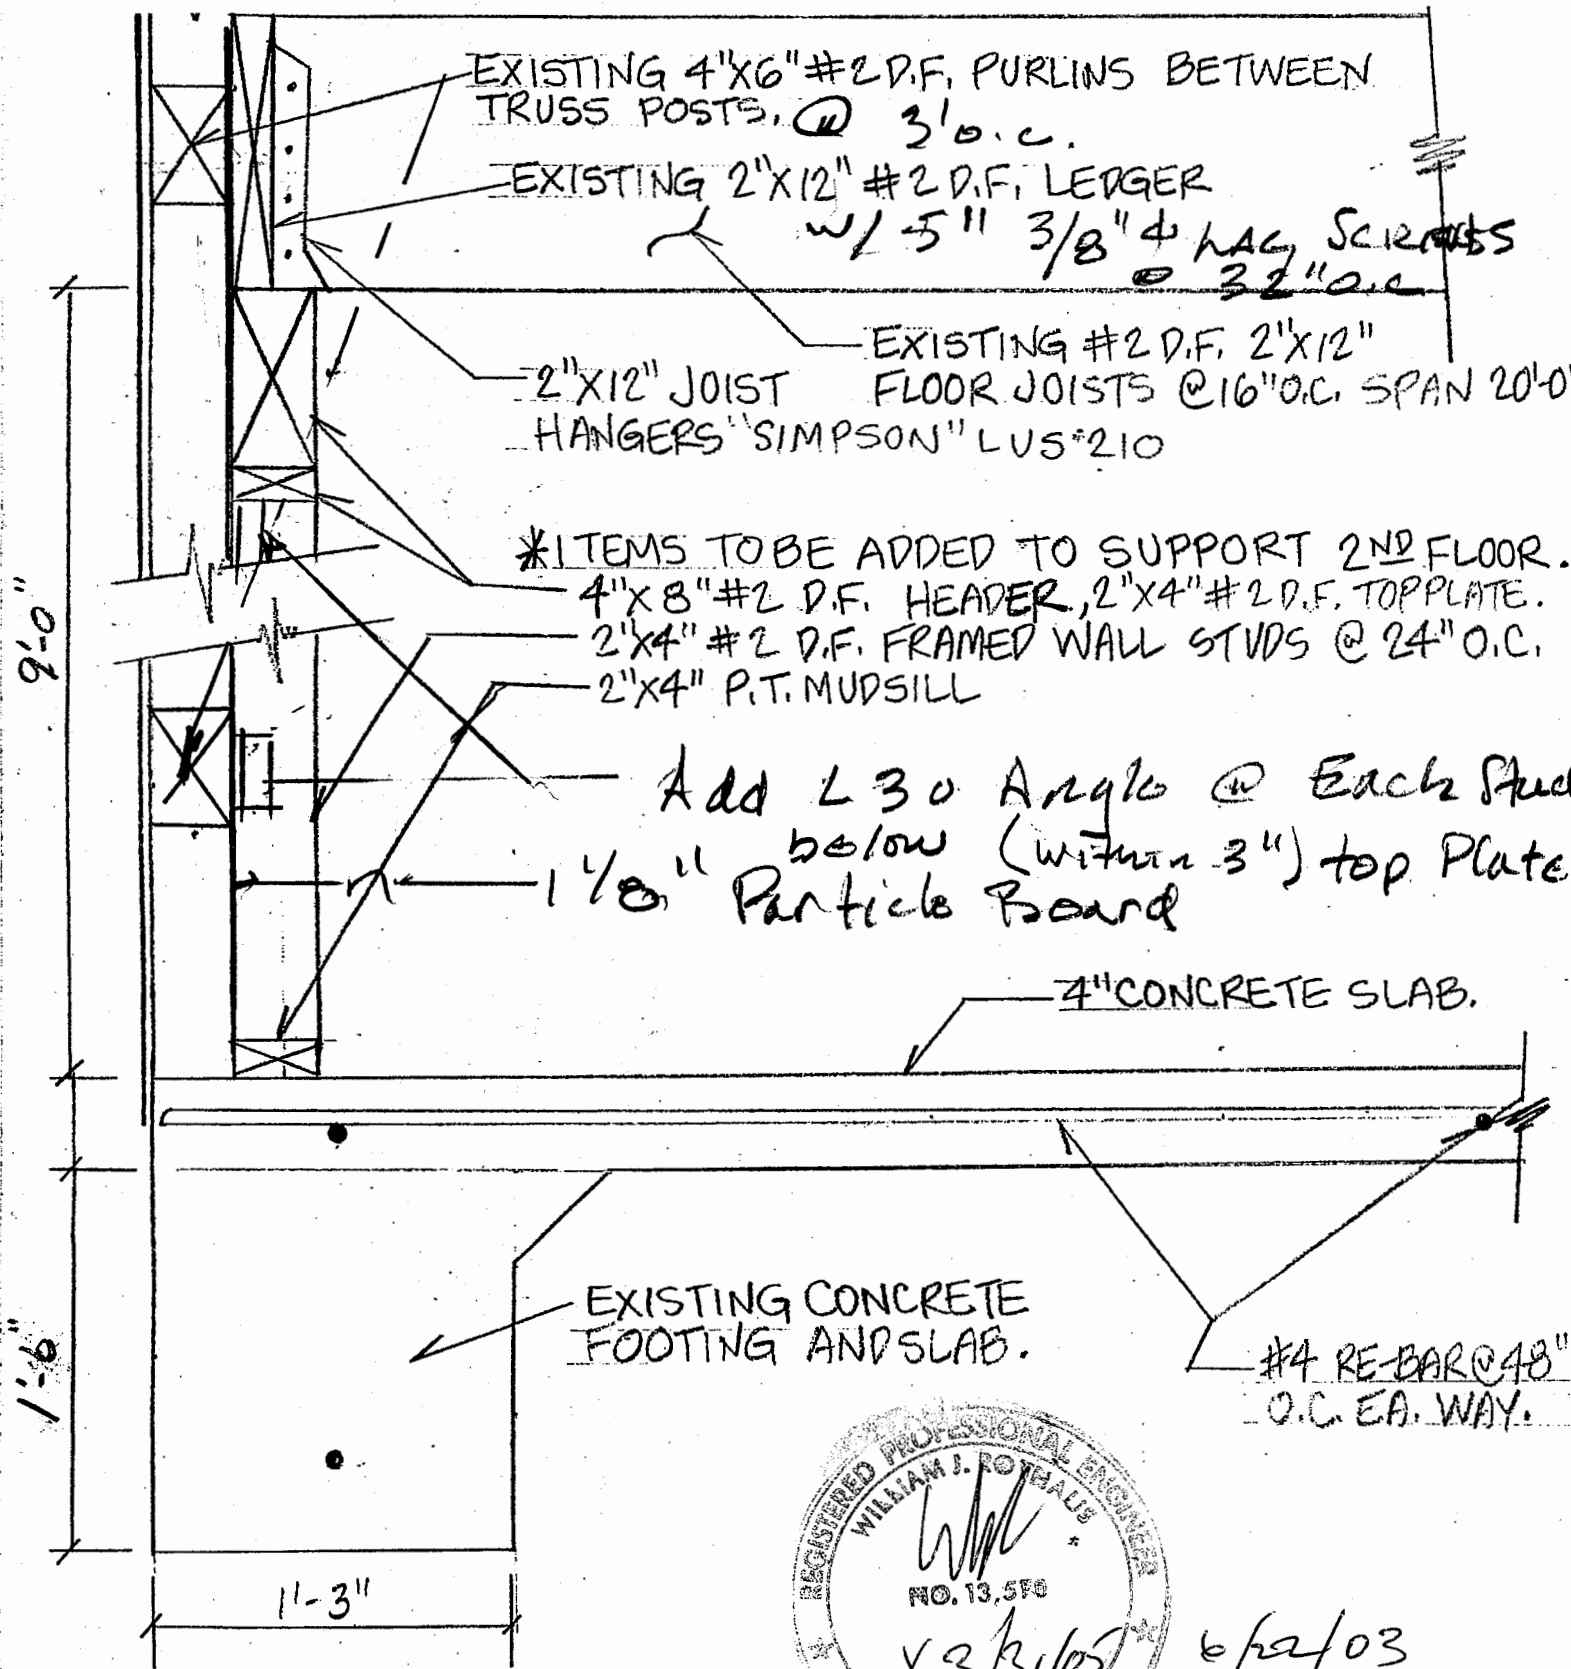 EXISTING 4"X6" #2 D.F. PURLINS BETWEEN
TRUSS POSTS. @ 3' o.c.
EXISTING 2"X12" #2 D.F. LEDGER
w/ 5" 3/8" ϕ LAG SCREWS
@ 32" o.c
EXISTING #2 D.F. 2"X12"
FLOOR JOISTS @ 16" O.C. SPAN 20'-0"
2"X12" JOIST
HANGERS "SIMPSON" LUS #210
*ITEMS TO BE ADDED TO SUPPORT 2ND FLOOR.
4"X8" #2 D.F. HEADER, 2"X4" #2 D.F. TOP PLATE.
2"X4" #2 D.F. FRAMED WALL STUDS @ 24" O.C.
2"X4" P.T. MUDSILL
9'-0"
Add L30 Angle @ Each Stud
below (within 3") top Plate
1 1/8" Particle Board
4" CONCRETE SLAB.
EXISTING CONCRETE
FOOTING AND SLAB.
#4 RE-BAR @ 48"
O.C. EA. WAY.
1'-6"
1'-3"
REGISTERED PROFESSIONAL ENGINEER
WILLIAM J. ROTHALIS
NO. 13,570
6/22/03